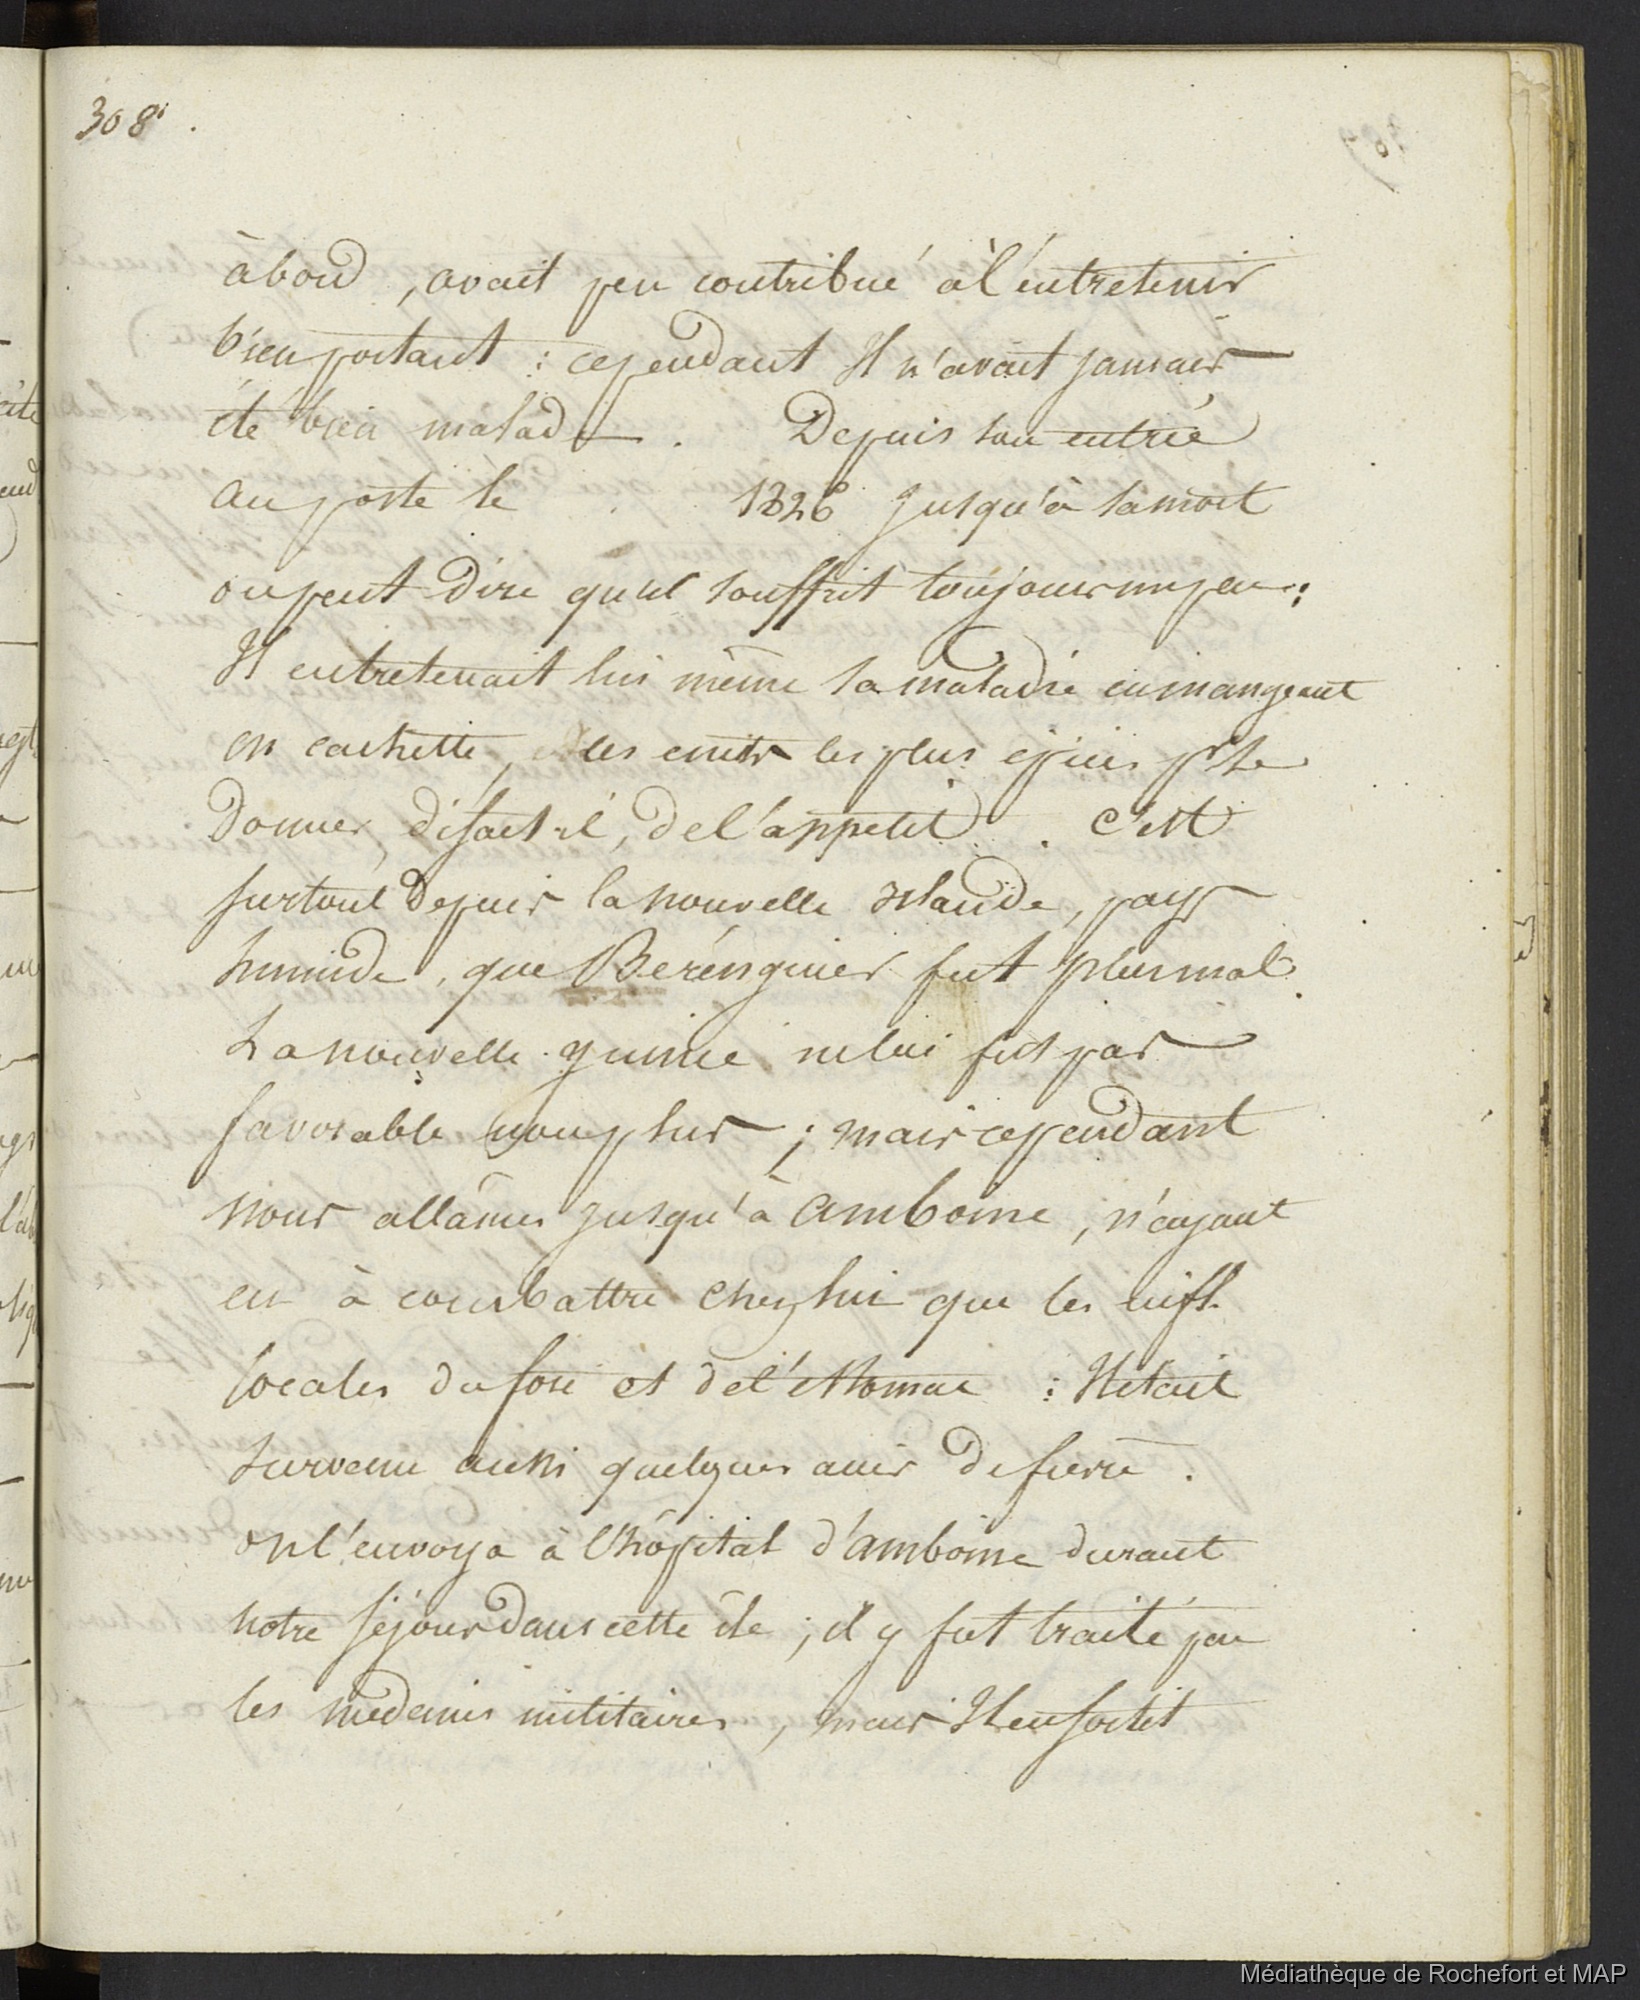 308.
à bord, avait peu contribué à l'entretenir
bien portant : cependant Il n'avait jamais
été bien malade. Depuis son entrée
au poste le 1826 jusqu'à sa mort
on peut dire qu'il souffrit toujours un peu :
Il entretenait lui même sa maladie en mangeant
en cachette, les mets les plus épicés pr se
Donner, disait-il, de l'appetit. C'est
surtout Depuis la nouvelle Irlande, pays
humide, que Berenguier fut plus mal.
La nouvelle guinée ne lui fut pas
favorable non plus ; mais cependant
nous allâmes jusqu'à amboine, n'ayant
eu à combattre chez lui que les infl.
locales du foie et de l'estomac : Il était
survenu aussi quelques accès de fievre.
on l'envoya à l'hôpital d'amboine durant
notre séjour dans cette île ; il y fut traité par
les medecins militaires, mais Il en sortit
Médiathèque de Rochefort et MAP